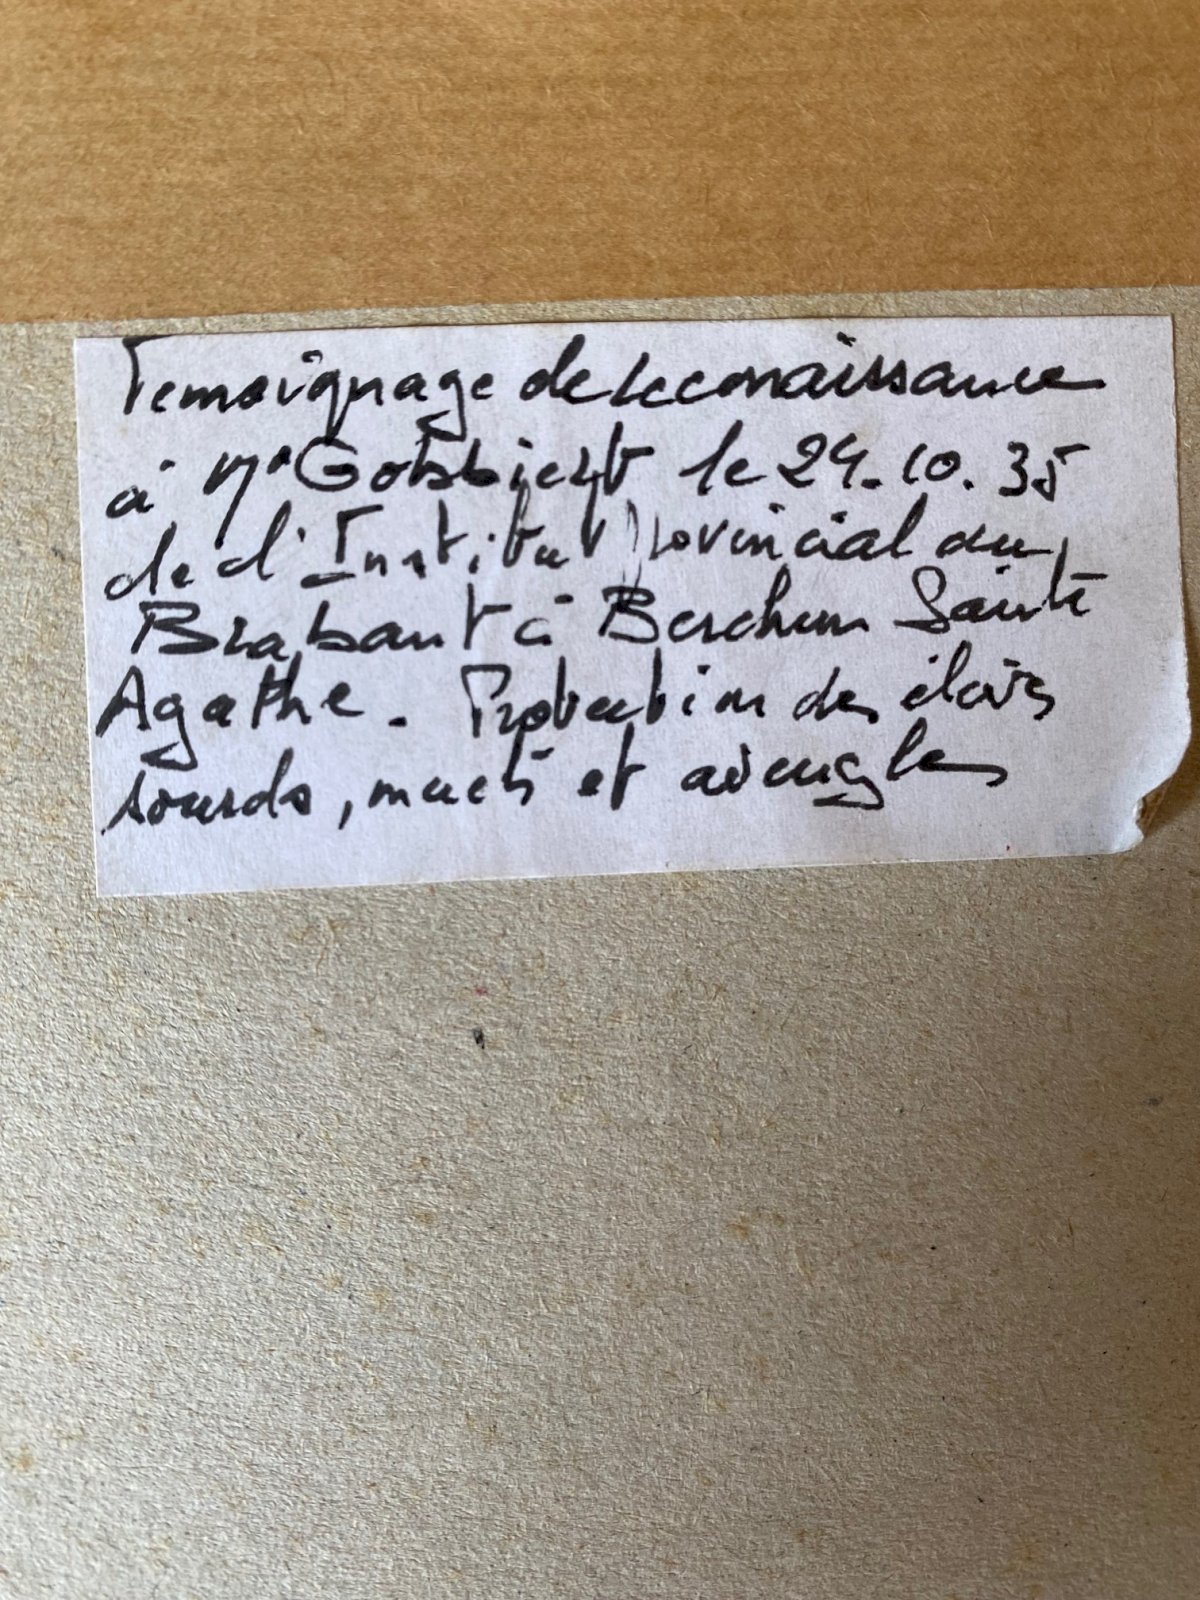 Temoignage de reconnaissance
à Mr le 24.10.35
de l'Institut Provincial du
Brabant à Berchem Sainte
Agathe. Protection des élèves
sourds, muets et aveugles